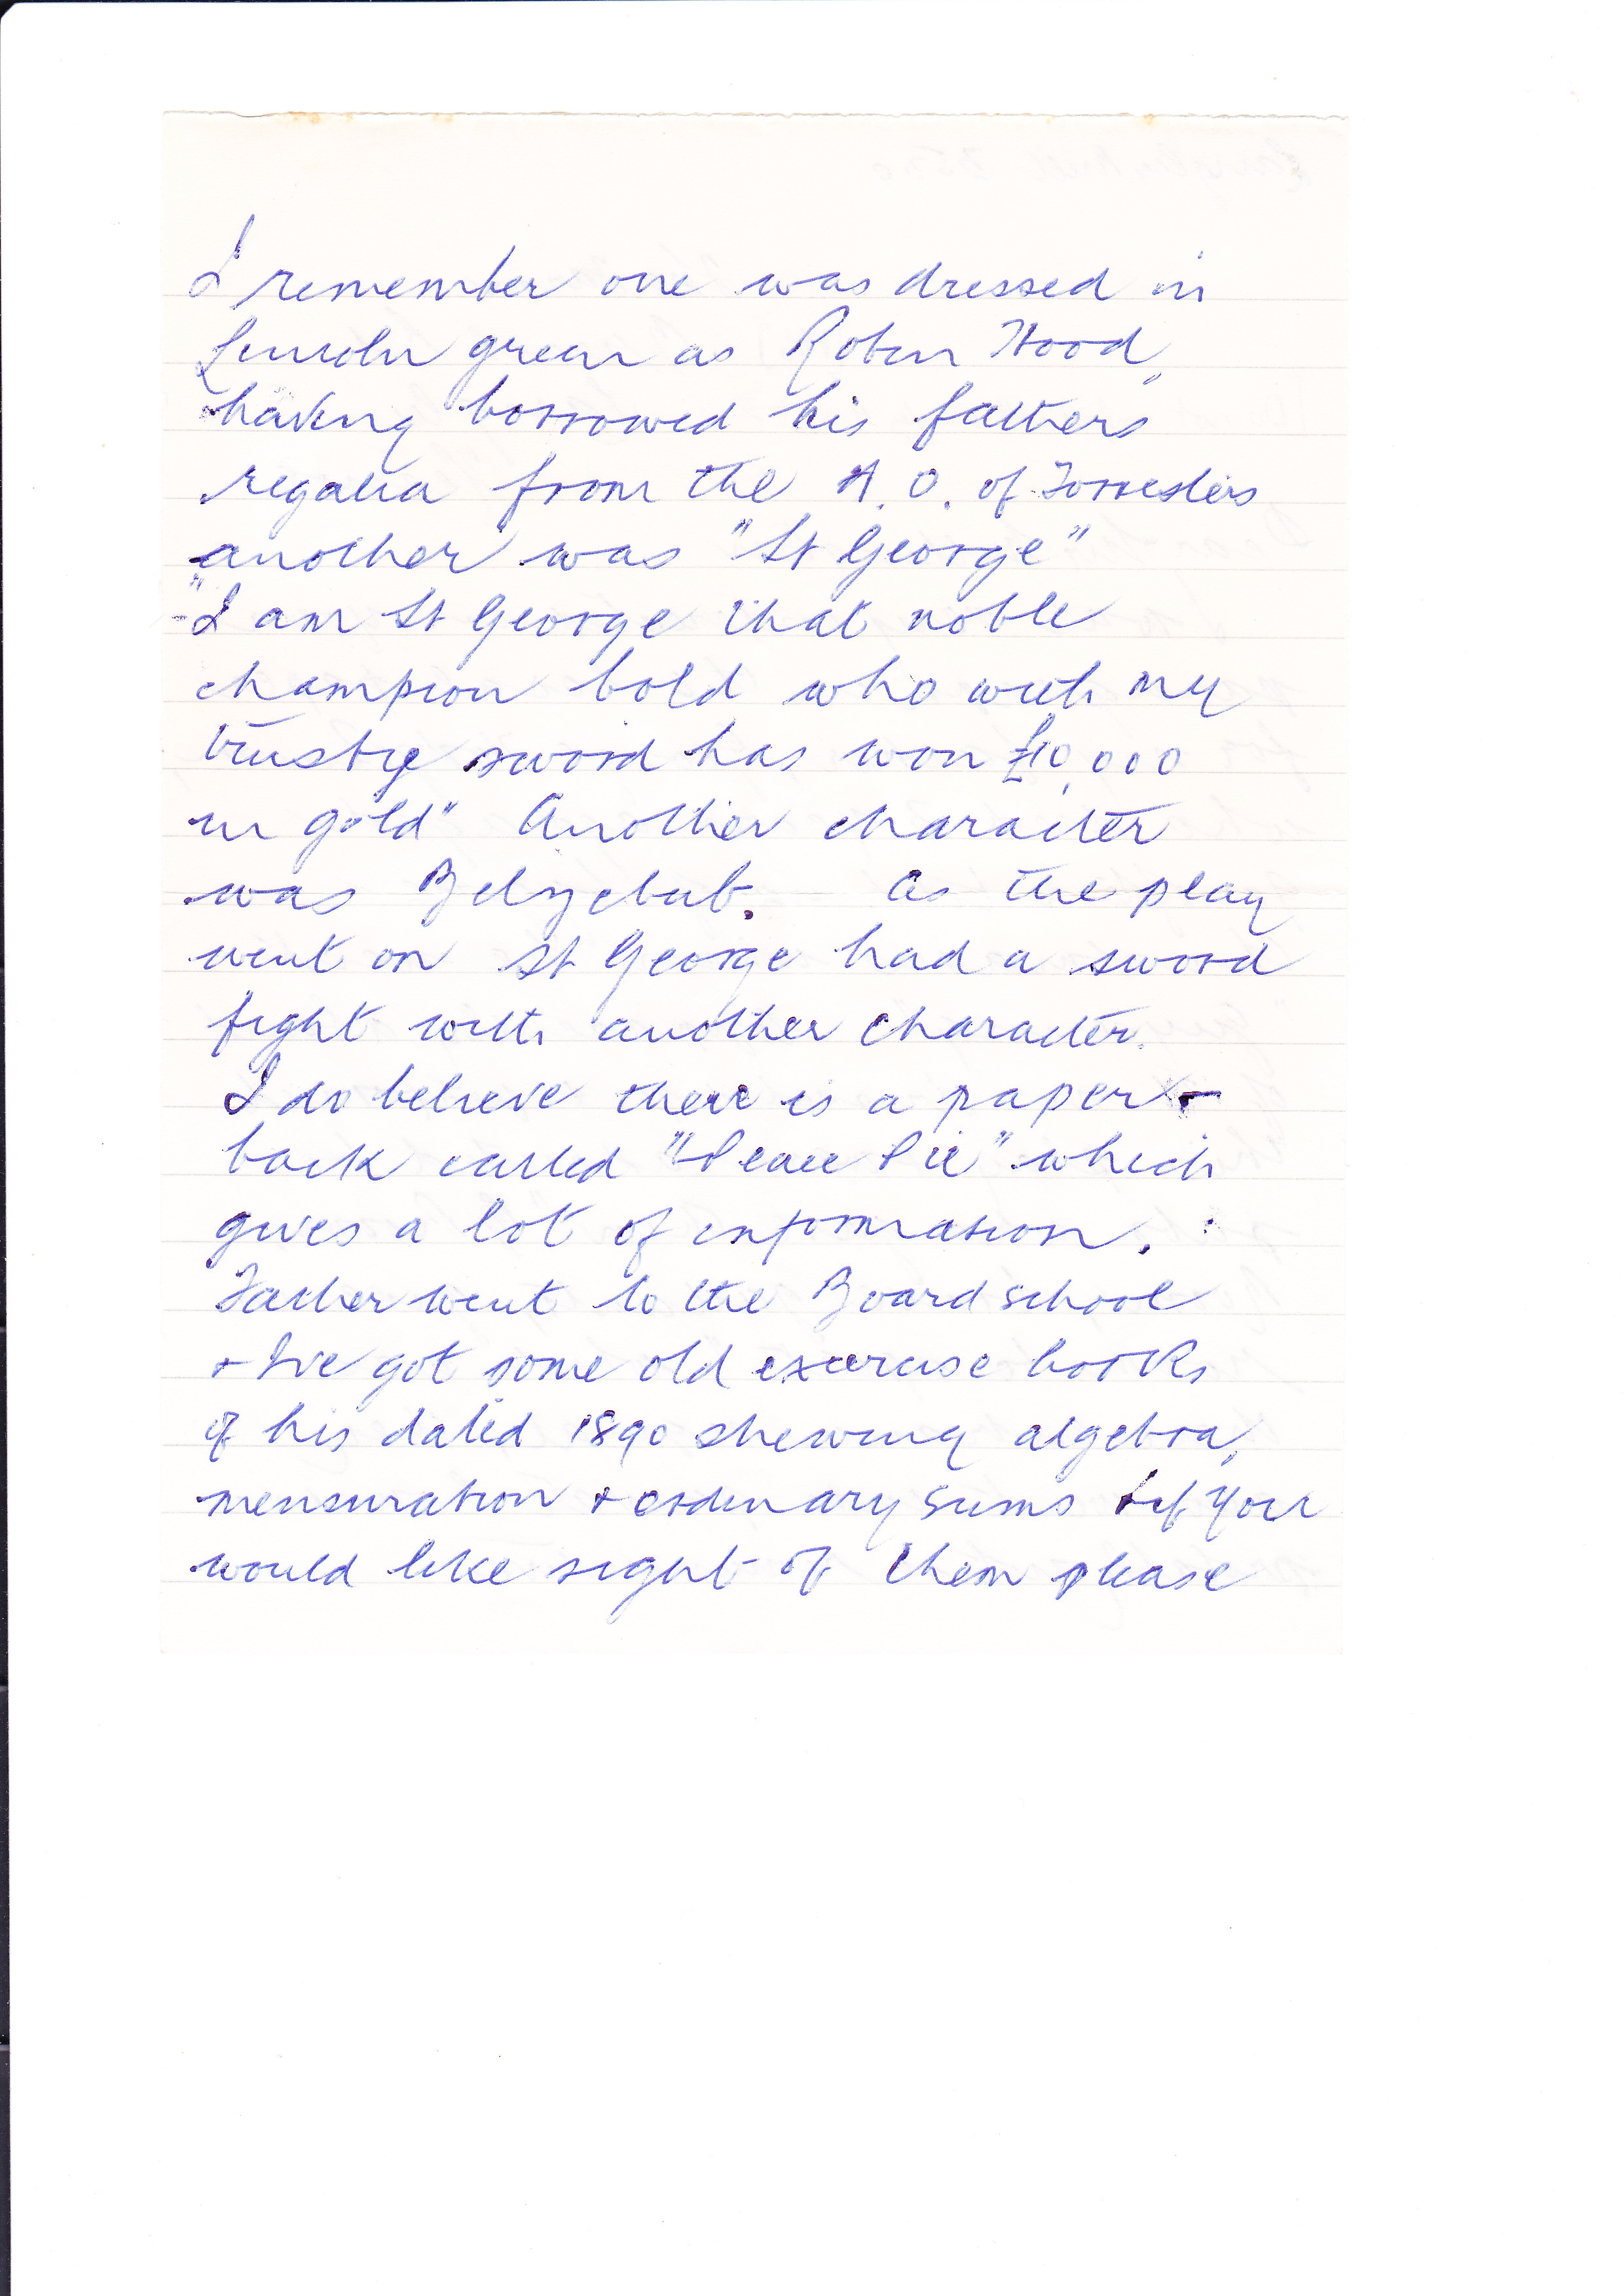 I remember one was dressed in
Lincoln green as Robin Hood,
having borrowed his fathers
regalia from the A.O. of Forresters
another was "St George"
"I am St George that noble
champion bold who with my
trusty sword has won £10,000
in gold" Another character
was Belzebub. As the play
went on St George had a sword
fight with another character.
I do believe there is a paper-
back called "Peace Pie" which
gives a lot of information.
Father went to the Board school
+ I've got some old exercise books
of his dated 1890 shewing algebra,
mensuration + ordinary sums + if you
would like sight of them please